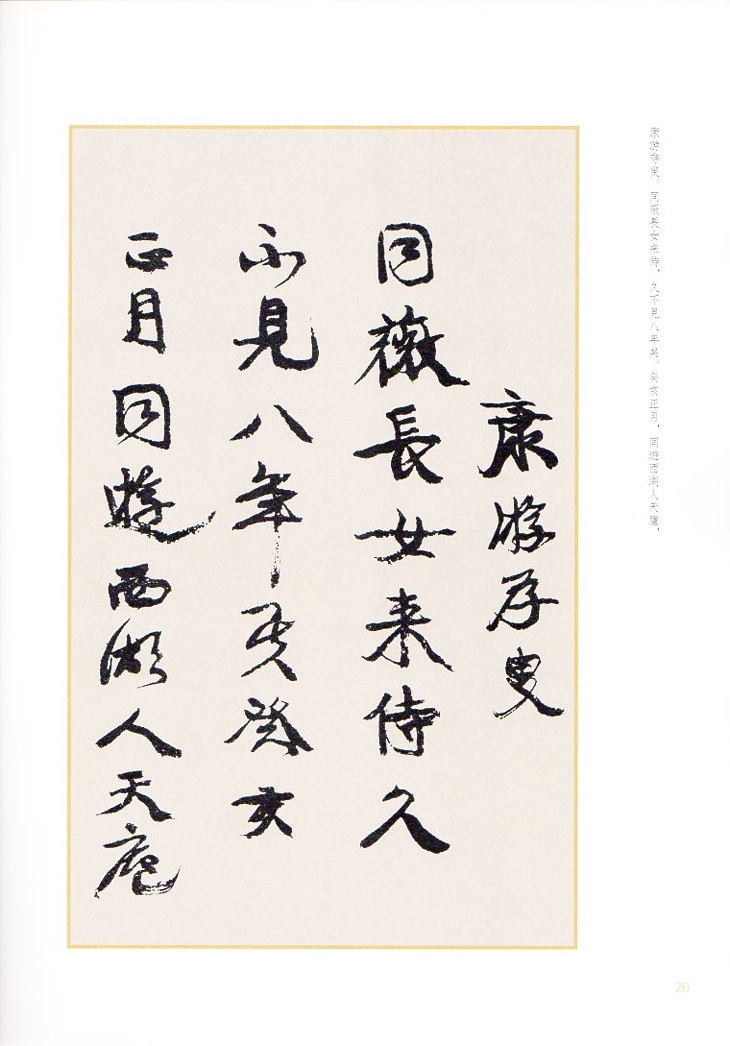 康游存叟。同薇長女来侍，久不見八年矣。癸亥正月，同遊西湖人天廬。
康游存叟
同薇長女来侍久
不見八年矣癸亥
正月同遊西湖人天廬
26